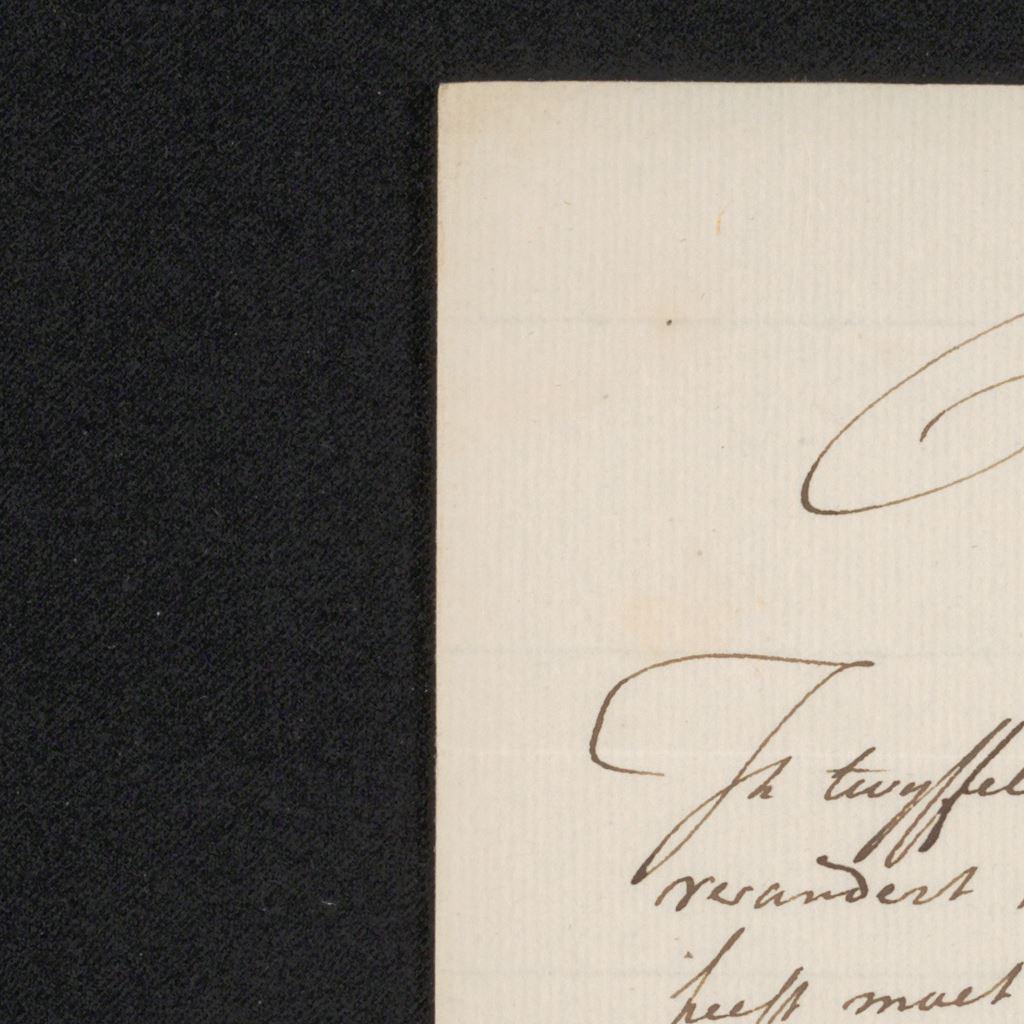 Ik twyffel
verandert
heeft moet